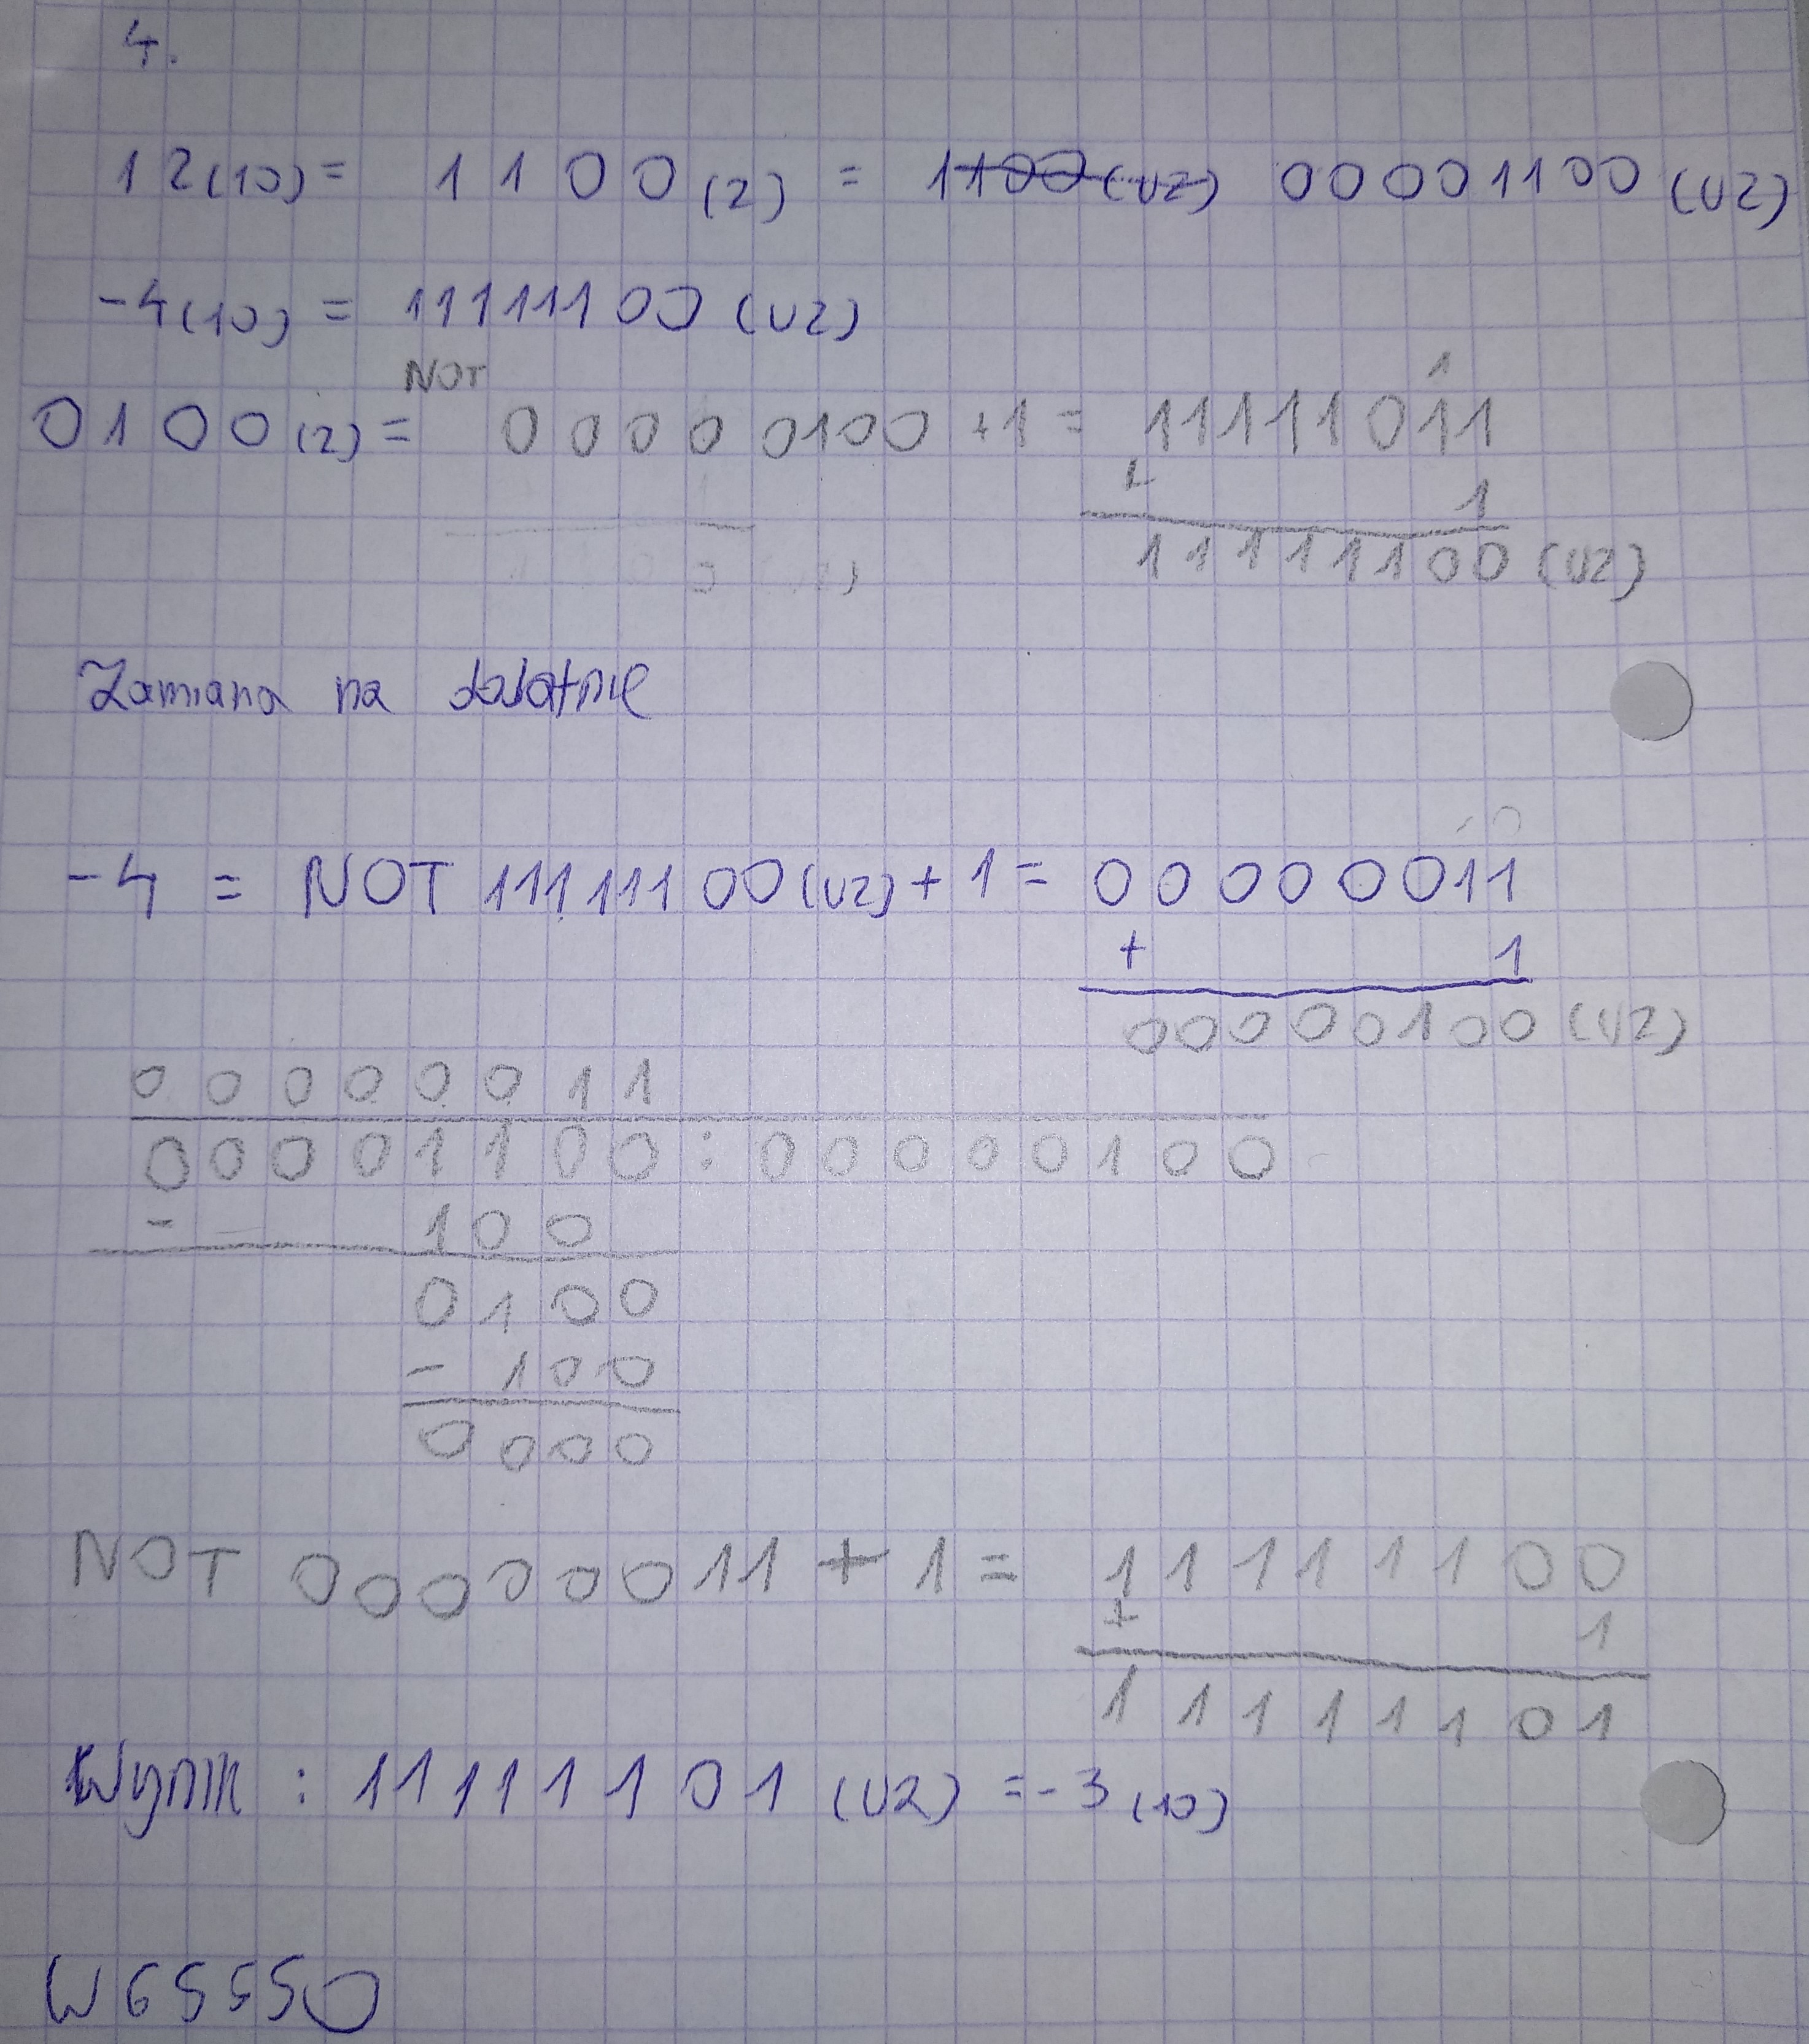 4.
12(10) = 1100(2) = 1100(U2) 00001100 (U2)
-4(10) = 11111100 (U2)
NOT 1
0100(2) = 00000100 +1 = 11111011
+ 1
11111100 (U2)
Zamiana na dodatnie
-4 = NOT 11111100(U2) + 1 = 00000011
+ 1
00000100 (U2)
00000011
00001100 : 00000100
- 100
0100
- 100
0000
NOT 00000011 + 1 = 11111100
+ 1
11111101
Wynik : 11111101 (U2) = -3(10)
W65550